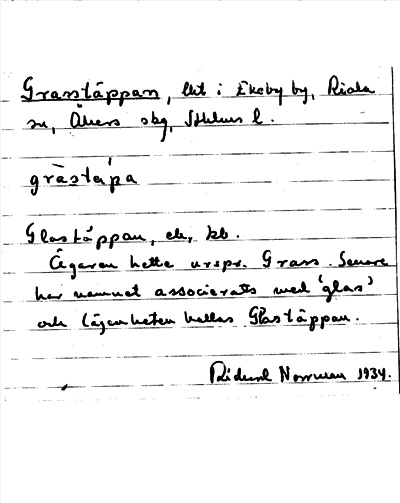 Grasstäppan, lht i Ekeby by, Riala
sn, Åkers skg, Sthlms l.
gràstépa
Glastäppan, ek, kb.
Ägaren hette urspr. Grass. Senare
har namnet associerats med 'glas'
och lägenheten kallas Glastäppan.
Norrman 1934.